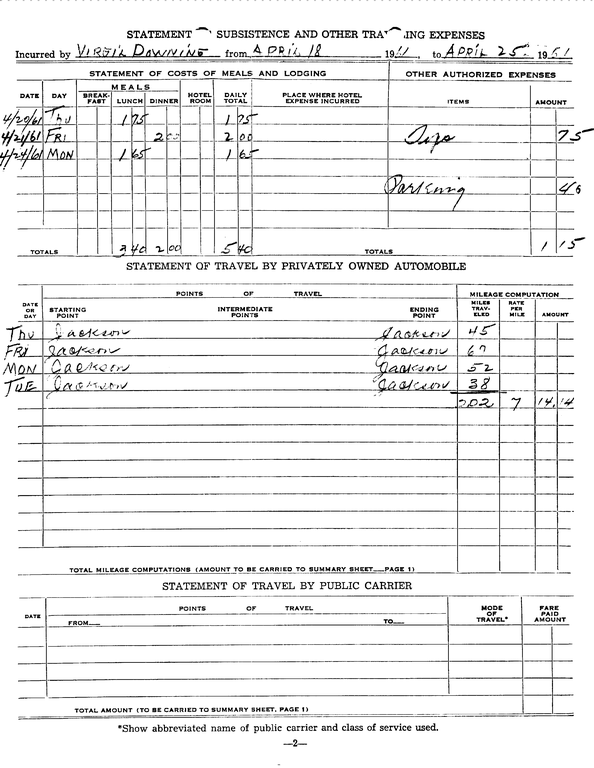 STATEMENT SUBSISTENCE AND OTHER TRA ING EXPENSES
Incurred by VIRGIL DOWNING from APRIL 18 1961 to APRIL 25 1961
STATEMENT OF COSTS OF MEALS AND LODGING OTHER AUTHORIZED EXPENSES
MEALS
DATE DAY BREAK-FAST LUNCH DINNER HOTEL ROOM DAILY TOTAL PLACE WHERE HOTEL EXPENSE INCURRED ITEMS AMOUNT
4/20/61 Thu 1 75 1 75
4/21/61 FRI 2 00 2 00 Tips 75
4/24/61 MON 1 65 1 65
Parking 40
TOTALS 3 40 2 00 5 40 TOTALS 1 15
STATEMENT OF TRAVEL BY PRIVATELY OWNED AUTOMOBILE
POINTS OF TRAVEL MILEAGE COMPUTATION
DATE OR DAY STARTING POINT INTERMEDIATE POINTS ENDING POINT MILES TRAV-ELED RATE PER MILE AMOUNT
Thu Jackson Jackson 45
FRI Jackson Jackson 67
MON Jackson Jackson 52
TUE Jackson Jackson 38
202 7 14.14
TOTAL MILEAGE COMPUTATIONS (AMOUNT TO BE CARRIED TO SUMMARY SHEET—PAGE 1)
STATEMENT OF TRAVEL BY PUBLIC CARRIER
DATE POINTS OF TRAVEL MODE OF TRAVEL* FARE PAID AMOUNT
FROM— TO—
TOTAL AMOUNT (TO BE CARRIED TO SUMMARY SHEET, PAGE 1)
*Show abbreviated name of public carrier and class of service used.
—2—